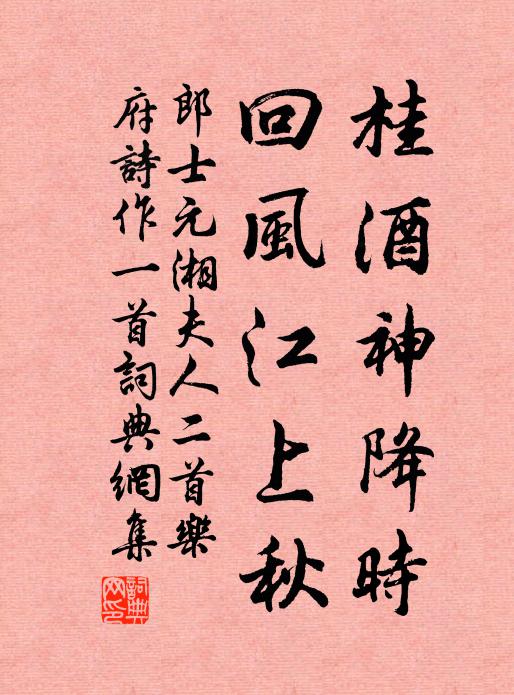 桂酒神降時
回風江上秋
郎士元湘夫人二首樂
府詩作一首詞典網集
詞典網印